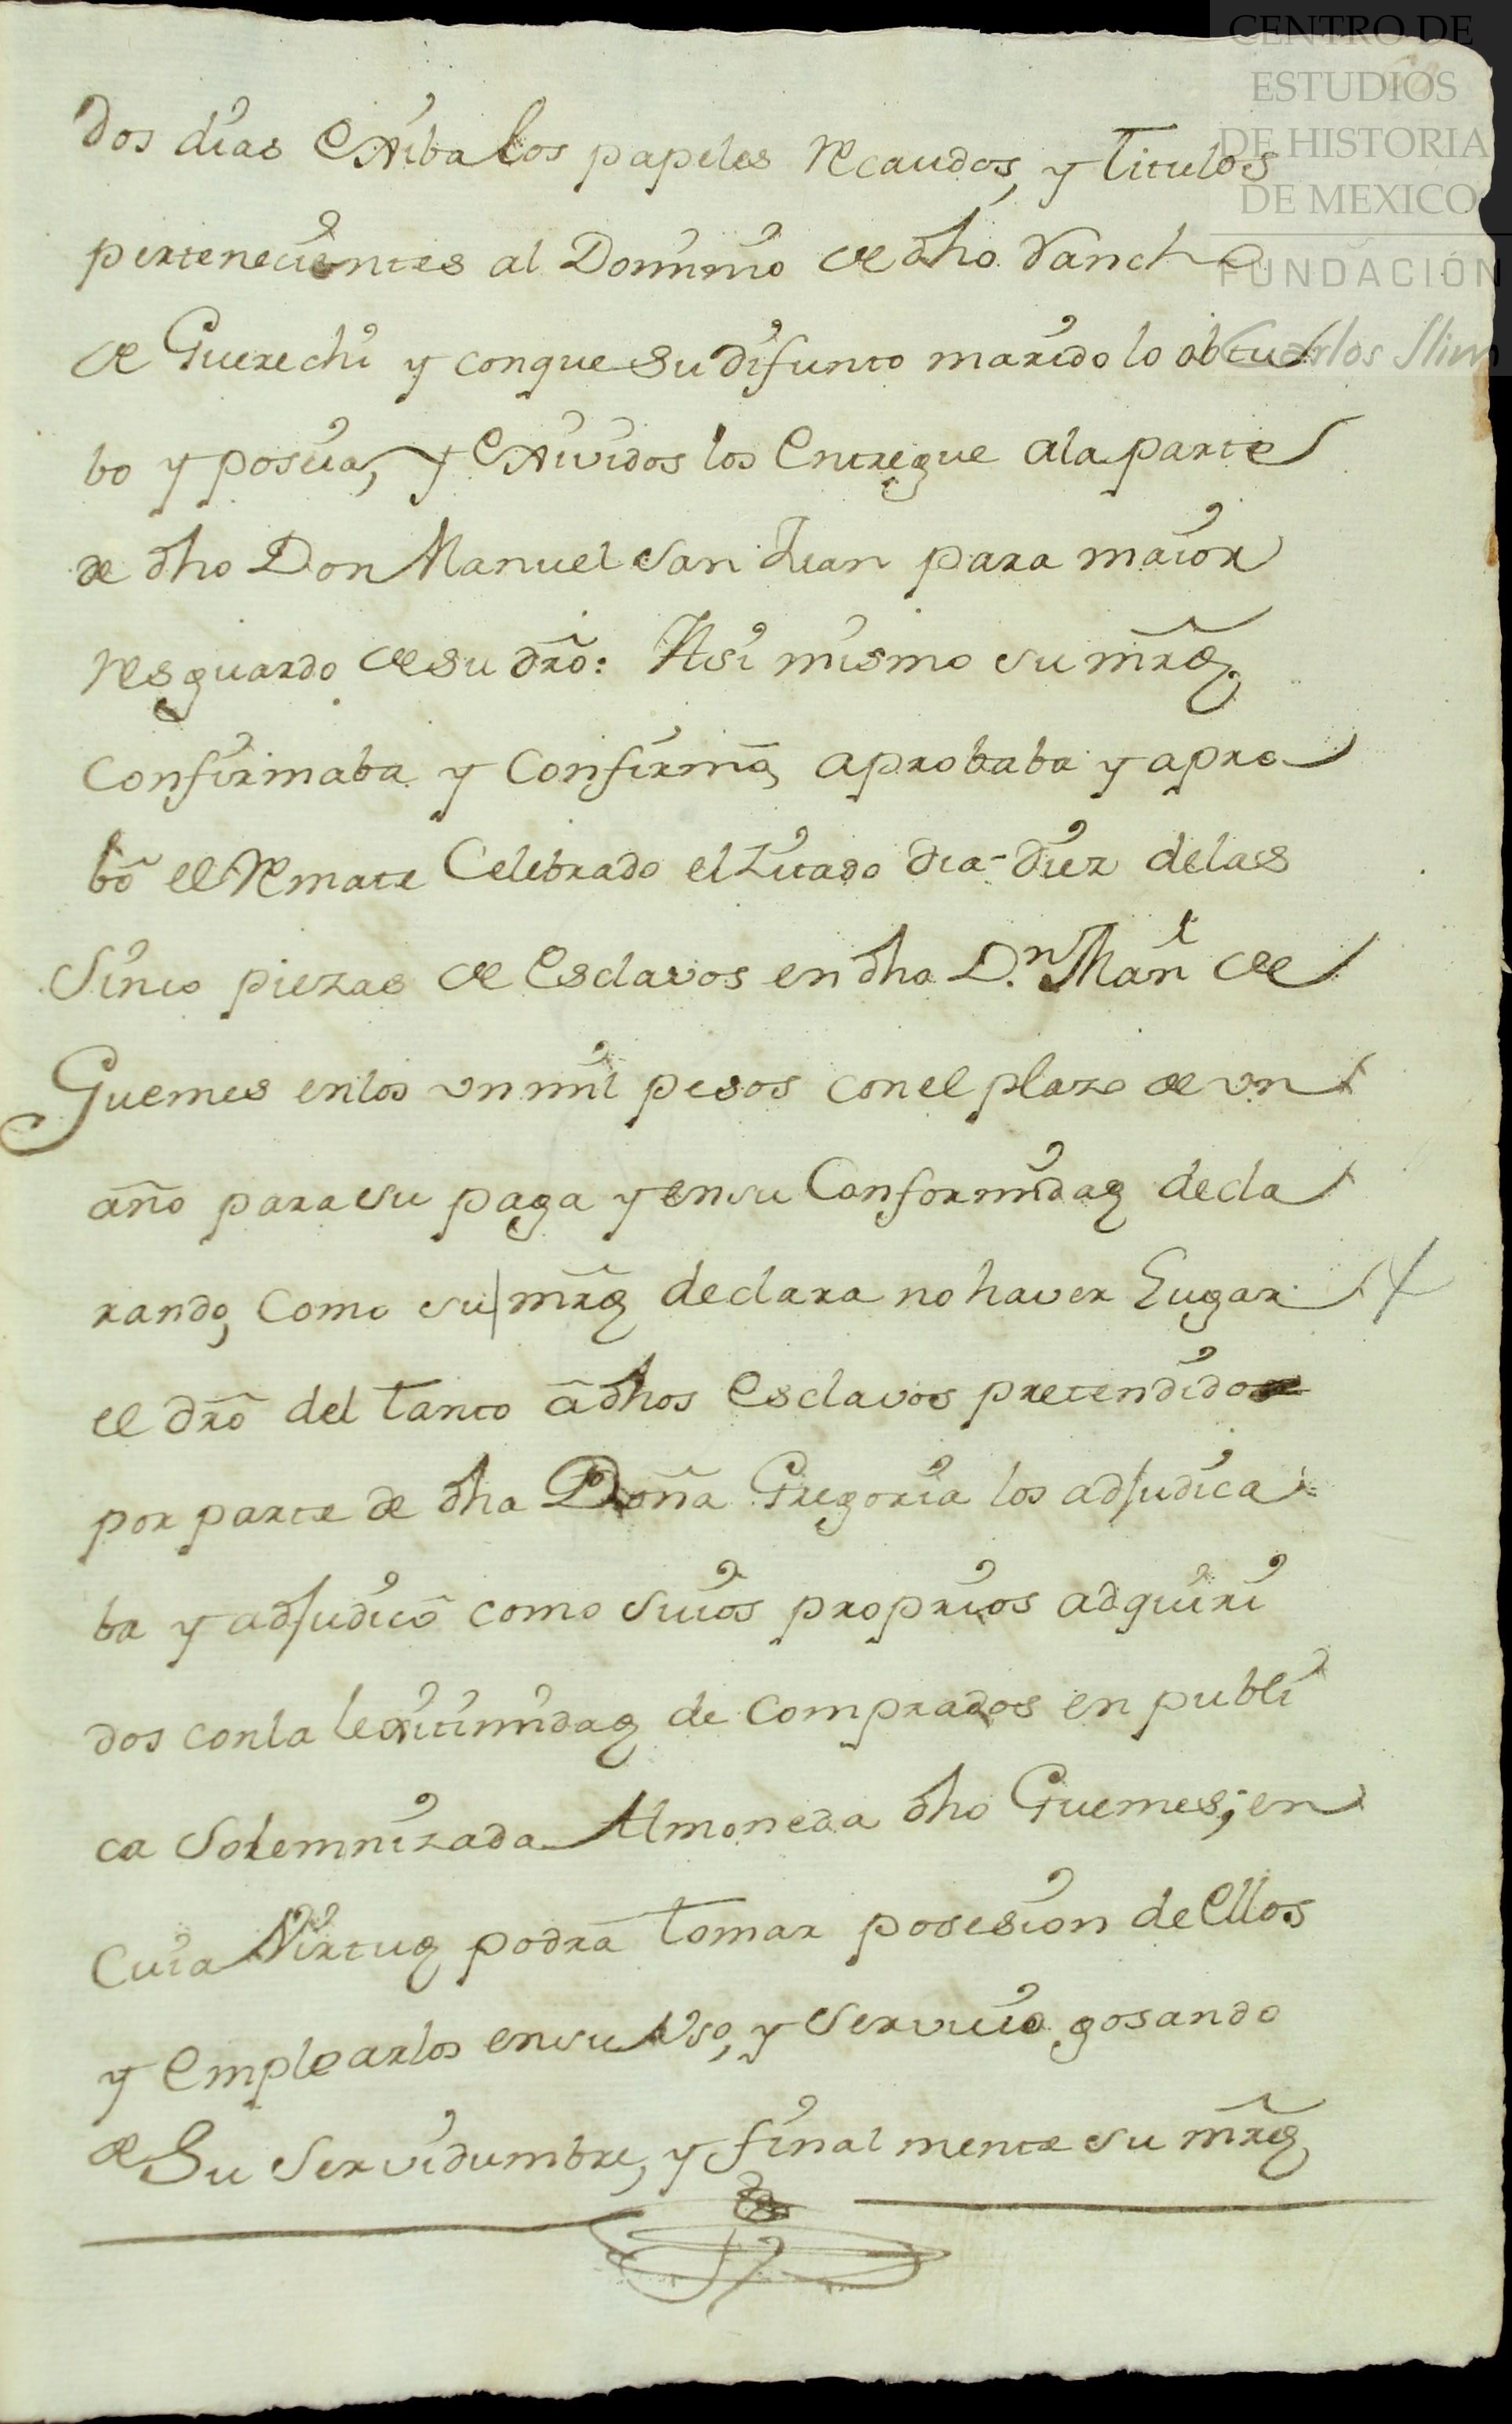 CENTRO DE
ESTUDIOS
DE HISTORIA
DE MEXICO
FUNDACIÓN
Carlos Slim
dos dias exiba los papeles recaudos, y titulos
pertenecientes al Dominio de dho rancho
de Guerechi y conque su difunto marido lo obtu
bo y poseia, y exividos los entregue ala parte
de dho Don Manuel San Juan para maior
resguardo de su dr̃o: Asi mismo su mr̃d
confirmaba y confirmó, aprobaba y apro
bó el remate Celebrado el zitado dia diez delas
sinco piezas de esclavos en dho D.n Man.l de
Guemes enlos un mil pesos conel plazo de un
año para su paga y ensu Conformidad decla
rando, como su mr̃d declara no haver lugar
el dr̃o del tanto á dhos esclavos pretendido
por parte de dha Doña Gregoria los adjudica
ba y adjudicó como suios proprios adquiri
dos conla lexitimidad de comprados en publi
ca solemnizada Almoneda dho Guemes; en
cuia virtud podrá tomar posesion de ellos
y emplearlos ensu uso, y servicio gosando
de su servidumbre, y finalmente su mr̃d